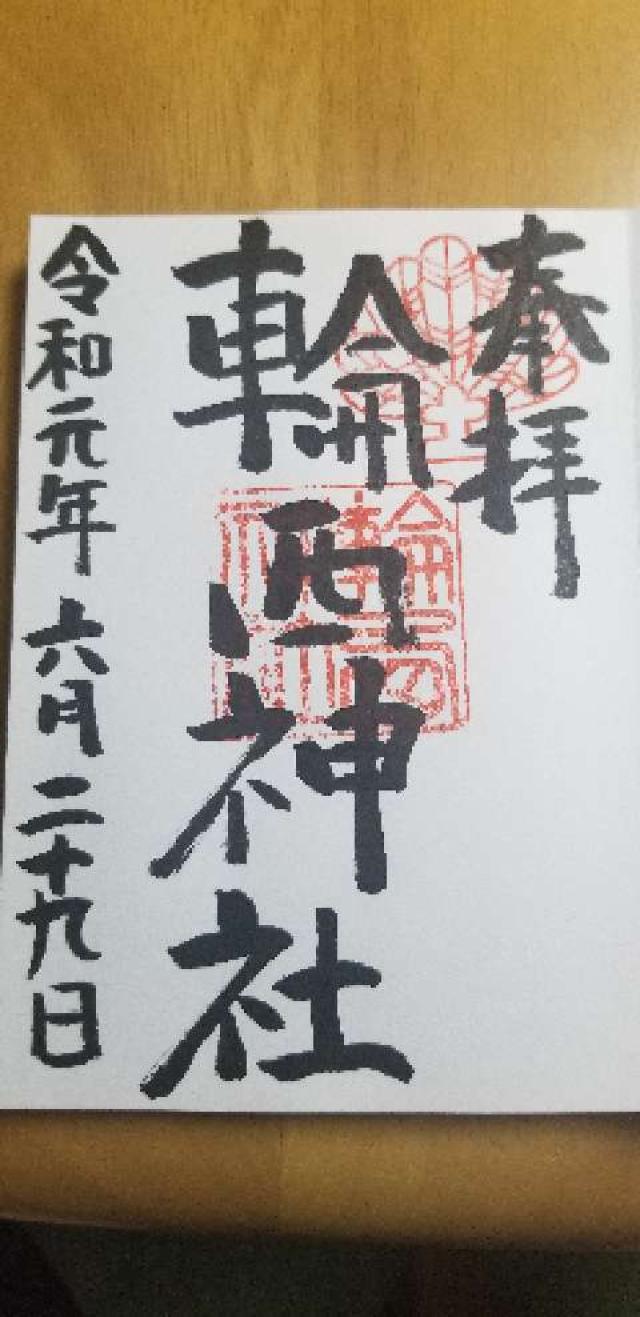 奉拝
輪西神社
令和元年六月二十九日